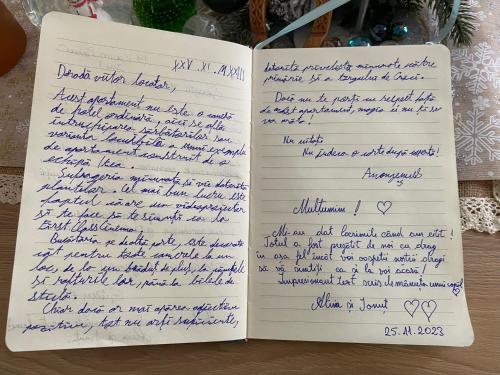 XXV .XI. MMXXIII
Dragă viitor locatar,
Acest apartament nu este o cameră
de hotel ordinară, aici se află
întruchiparea sărbătorilor sau
varianta a unui exemplu
de apartament construit de o
echipă Ikea.
Sufrageria minunată și vie datorită
plantelor. Cel mai bun lucru este
faptul că are un videoproiector
să te facă să te simți ca la
First Class Cinema.
Bucătăria pe de altă parte, este decorată
cât pentru toate camerele la un
loc, de la un braduț de plus, la
și rafturile lor, până la bilele de
sticlă.
Chiar dacă ar mai apărea adjective
pozitive, tot nu ar fi suficiente,
datorită priveliștii minunate către
primărie și a târgului de Crăciun.
Dacă nu te porți cu respect față
de acest apartament, magia nu ți se
va arăta!
Nu uitați
Nu judeca o carte după copertă!
Anonymus
Mulțumim! ♡
Mi-au dat lacrimile când am citit!
Totul a fost pregătit de noi cu drag
în așa fel încât voi oaspeții noștri dragi
să vă simțiți ca și la voi acasă!
Impresionant text scris de mânuța unui copil ♡
Alina și Ionuț ♡♡
25.11.2023